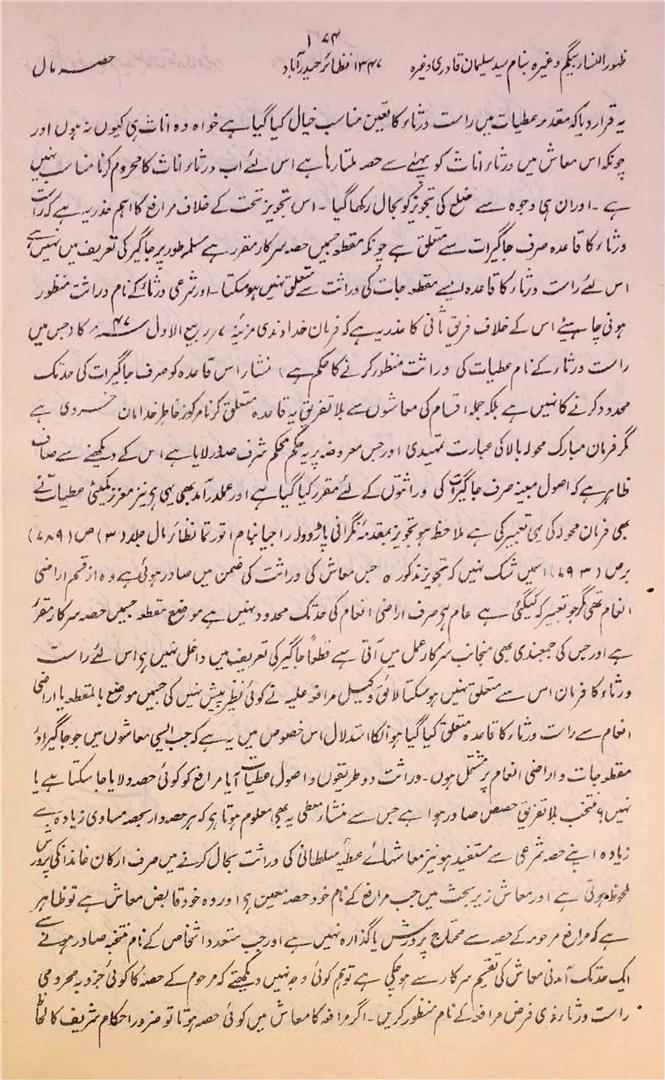 ۱۷۴
ظہور النسا بیگم وغیرہ بنام سید سلیمان قادری وغیرہ ۱۳۴۷ نظائر حیدرآباد حصہ مال
یہ قرار دیا کہ مقدمہ عطیات میں راست ورثاء کا تعین مناسب خیال کیا گیا ہے خواہ وہ اناث ہی کیوں نہ ہوں اور
چونکہ اس معاش میں ورثاء اناث کو پہلے سے حصہ ملتا رہا ہے اس لئے اب ورثاء اناث کا محروم کرنا مناسب نہیں
ہے ۔ اور ان ہی وجوہ سے ضلع کی تجویز کو بحال رکھا گیا ۔ اس تجویز تحت کے خلاف مرافع کا اہم عذر یہ ہے کہ راست
ورثاء کا قاعدہ صرف جاگیرات سے متعلق ہے چونکہ مقطعہ جسمیں حصہ سرکار مقرر ہے مسلمہ طور پر جاگیر کی تعریف میں نہیں ہے
اس لئے راست ورثاء کا قاعدہ ایسے مقطعہ جات کی وراثت سے متعلق نہیں ہو سکتا ۔ اور شرعی ورثاء کے نام وراثت منظور
ہونی چاہیئے اس کے خلاف فریق ثانی کا عذر یہ ہے کہ فرمان خداوندی مزینہ ۷ ربیع الاول ۴۷ کا (جس میں
راست ورثاء کے نام عطیات کی وراثت منظور کرنے کا حکم ہے) منشار اس قاعدہ کو صرف جاگیرات کی حد تک
محدود کرنے کا نہیں ہے بلکہ جملہ اقسام کی معاشوں سے بلا تفریق یہ قاعدہ متعلق کرنا مرکوز خاطر خدایان خسروی ہے
مگر فرمان مبارک محولہ بالا کی عبارت تمہیدی اور جس معروضہ پر یہ حکم محکم شرف صدور لایا ہے اس کے دیکھنے سے صاف
ظاہر ہے کہ اصول مبینہ صرف جاگیرات کی وراثتوں کے لئے مقرر کیا گیا ہے اور عملدرآمد بھی یہی ہے نیز معزز کمیٹی عطیات نے
بھی فرمان محولہ کی یہی تعبیر کی ہے ملاحظہ ہو تجویز بمقدمہ نگرانی پاڑودولہ راجیا بنام انورتما نظائر مال جلد (۳) ص (۷۸۹)
برص (۷۹۳) اسمیں شک نہیں کہ تجویز مذکورہ جس معاش کی وراثت کی ضمن میں صادر ہوئی ہے وہ از قسم اراضی
انعام تھی مگر جو تعبیر کہ کی گئی ہے عام ہے صرف اراضی انعام کی حد تک محدود نہیں ہے موضع مقطعہ جسمیں حصہ سرکار مقرر
ہے اور جس کی جمعبندی بھی منجانب سرکار عمل میں آتی ہے قطعاً جاگیر کی تعریف میں داخل نہیں ہے اس لئے راست
ورثاء کا فرمان اس سے متعلق نہیں ہو سکتا لائق وکیل مرافعہ علیہ نے کوئی نظیر پیش نہیں کی جسمیں موضع بالمقطعہ یا اراضی
انعام سے راست ورثاء کا قاعدہ متعلق کیا گیا ہو انکا استدلال اس خصوص میں یہ ہے کہ جب ایسی معاشوں میں جو جاگیرات
مقطعہ جات و اراضی انعام پر مشتمل ہوں ۔ وراثت دو طریقوں و اصول عطیات آیا مرافع کو کوئی حصہ دلایا جا سکتا ہے یا
نہیں ؟ منتخب بلا تفریق حصص صادر ہوا ہے جس سے منشار معطی یہ بھی معلوم ہوتا ہے کہ ہر حصہ دار بحصہ مساوی زیادہ سے
زیادہ اپنے حصہ شرعی سے مستفید ہو نیز معاشہائے عطیہ سلطانی کی وراثت بحال کرنے میں صرف ارکان خاندان کی پرورش
ملحوظ ہوتی ہے اور معاش زیر بحث میں جب مرافع کے نام خود حصہ معین ہے اور وہ خود قابض معاش ہے تو ظاہر
ہے کہ مرافع مرحومہ کے حصہ سے محتاج پرورش یا گذارہ نہیں ہے اور جب متعدد اشخاص کے نام منتخبہ صادر ہونے سے
ایک حد تک آمدنی معاش کی تقسیم سرکار سے ہو چکی ہے تو ہم کوئی وجہ نہیں دیکھتے کہ مرحوم کے حصہ کا کوئی جزو بہ محرومی
راست ورثاء ذی فرض مرافعہ کے نام منظور کریں ۔ اگر مرافعہ کا معاش میں کوئی حصہ ہوتا تو ضرور احکام شریف کا لحاظ